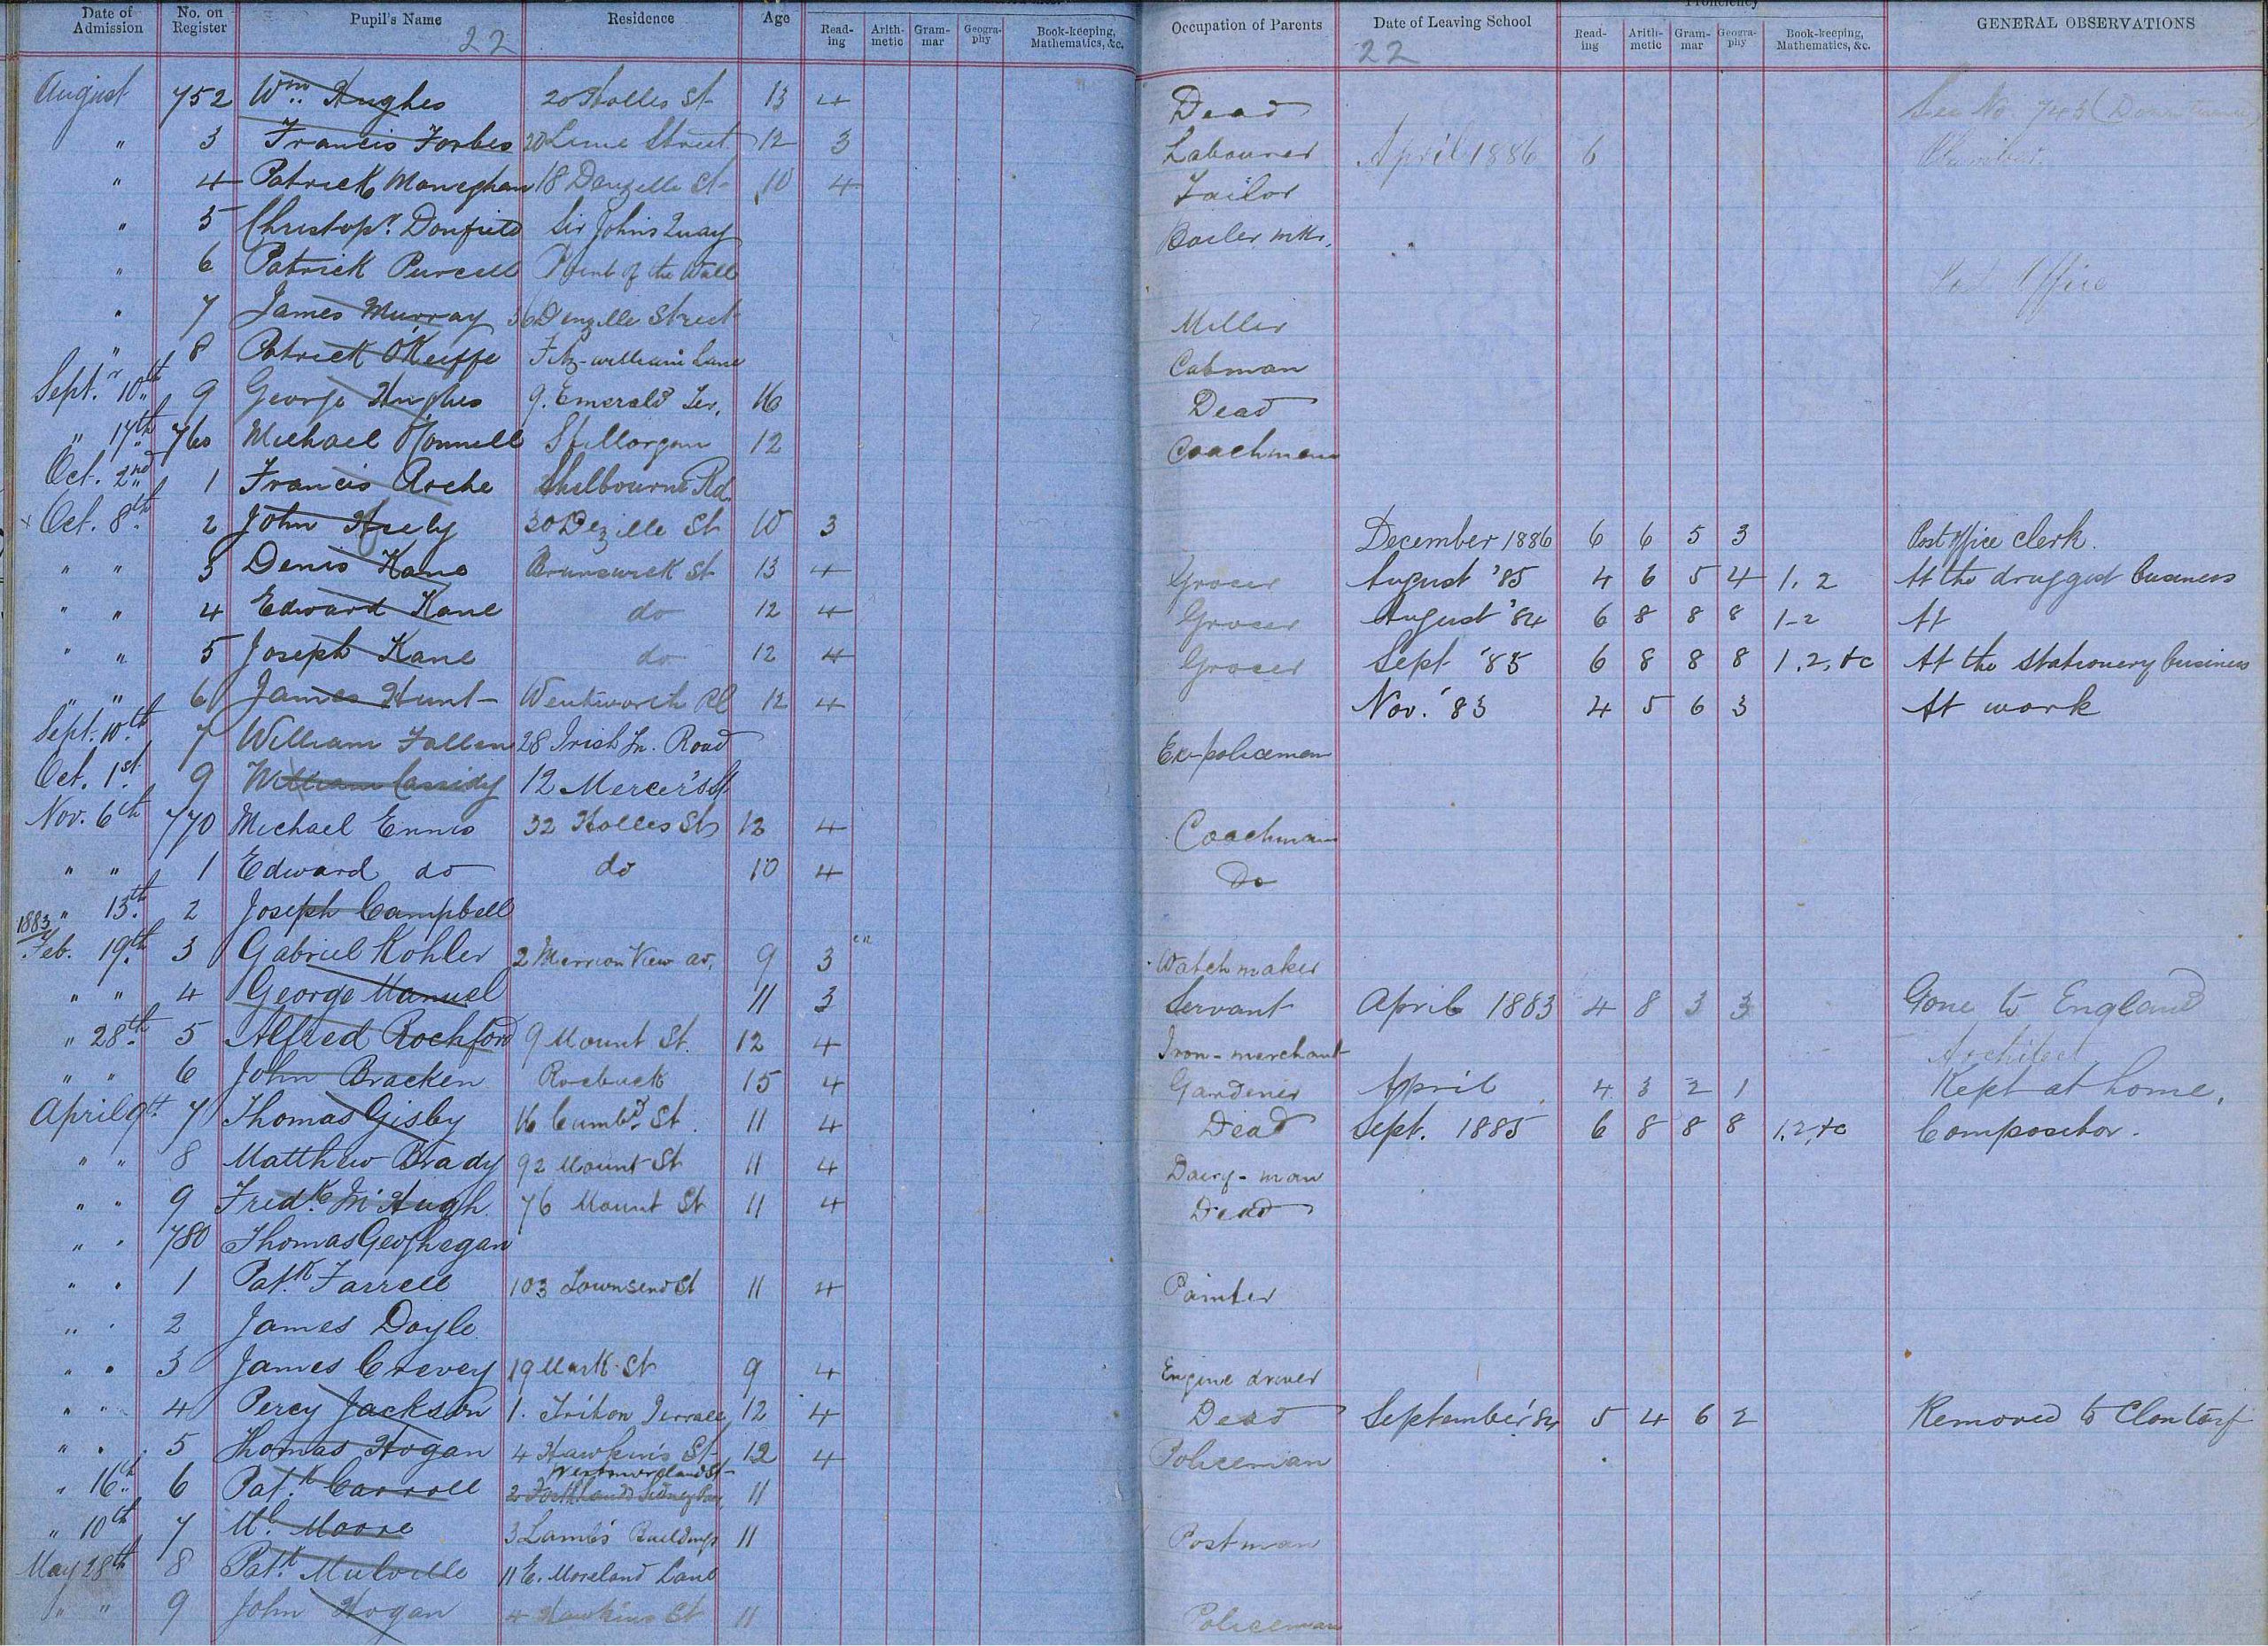 Date of Admission No. on Register Pupil's Name Residence Age Read-ing Arith-metic Gram-mar Geogra-phy Book-keeping, Mathematics, &c. Occupation of Parents Date of Leaving School Proficiency Read-ing Arith-metic Gram-mar Geogra-phy Book-keeping, Mathematics, &c. GENERAL OBSERVATIONS
22 22
August 752 Wm. Hughes 20 Holles St 13 4 Dead See No. 743
" 3 Francis Forbes 20 Lime Street 12 3 Labourer April 1886 6 Plumber
" 4 Patrick Moneghan 18 Denzille St 10 4 Tailor
" 5 Christopr. Donfield Sir John's Quay Boiler mkr.
" 6 Patrick Purcell Point of the Wall Post Office
" 7 James Murray 36 Denzille Street Miller
" 8 Patrick O'Keiffe Fitz-william Lane Cabman
Sept.r 10th 9 George Hughes 9. Emerald Ter. 16 Dead
" 17th 760 Michael O'Connell Stillorgan 12 Coachman
Oct. 2nd 1 Francis Roche Shelbourne Rd.
Oct. 8th 2 John Heely 30 Dezille St 10 3 December 1886 6 6 5 3 Post Office Clerk.
" " 3 Denis Kane Brunswick St 13 4 Grocer August '85 4 6 5 4 1. 2 At the druggist business
" " 4 Edward Kane do 12 4 Grocer August '84 6 8 8 8 1-2 At
" " 5 Joseph Kane do 12 4 Grocer Sept '85 6 8 8 8 1.2,&c At the stationery business
" " 6 James Hunt Wentworth Pl 12 4 Nov. '83 4 5 6 3 At work
Sept. 10th 7 William Fallen 28 Irish Tn. Road Ex-policeman
Oct. 1st 9 William Cassidy 12 Mercer's St
Nov. 6th 770 Michael Ennis 32 Holles St 12 4 Coachman
" " 1 Edward do do 10 4 Do
" 13th 2 Joseph Campbell
1883
Feb. 19th 3 Gabriel Kohler 2 Merrion View av. 9 3 Watchmaker
" " 4 George Manuel 11 3 Servant April 1883 4 8 3 3 Gone to England
" 28th 5 Alfred Rochford 9 Mount St. 12 4 Iron-merchant Architect
" " 6 John Bracken Roebuck 15 4 Gardener April 4 3 2 1 Kept at home.
April 9th 7 Thomas Gisby 16 Cumbd. St. 11 4 Dead Sept. 1885 6 8 8 8 1.2,&c Compositor.
" " 8 Matthew Brady 92 Mount St 11 4 Dairy-man
" " 9 Fredk. McHugh 76 Mount St 11 4 Dead
" " 780 Thomas Geoghegan
" " 1 Patk. Farrell 103 Townsend St 11 4 Painter
" " 2 James Doyle
" " 3 James Crevey 19 Mark St 9 4 Engine driver
" " 4 Percy Jackson 1. Triton Terrace 12 4 Dead September '84 5 4 6 2 Removed to Clontarf
" " 5 Thomas Hogan 4 Hawkins St 12 4 Policeman
" 16th 6 Patk. Carroll Westmoreland St 11
" 10th 7 Ml. Moore 3 Lamb's Buildings 11 Postman
May 28th 8 Patk. Mulville 11 E. Moreland Lane
" " 9 John Hogan 4 Hawkins St 11 Policeman